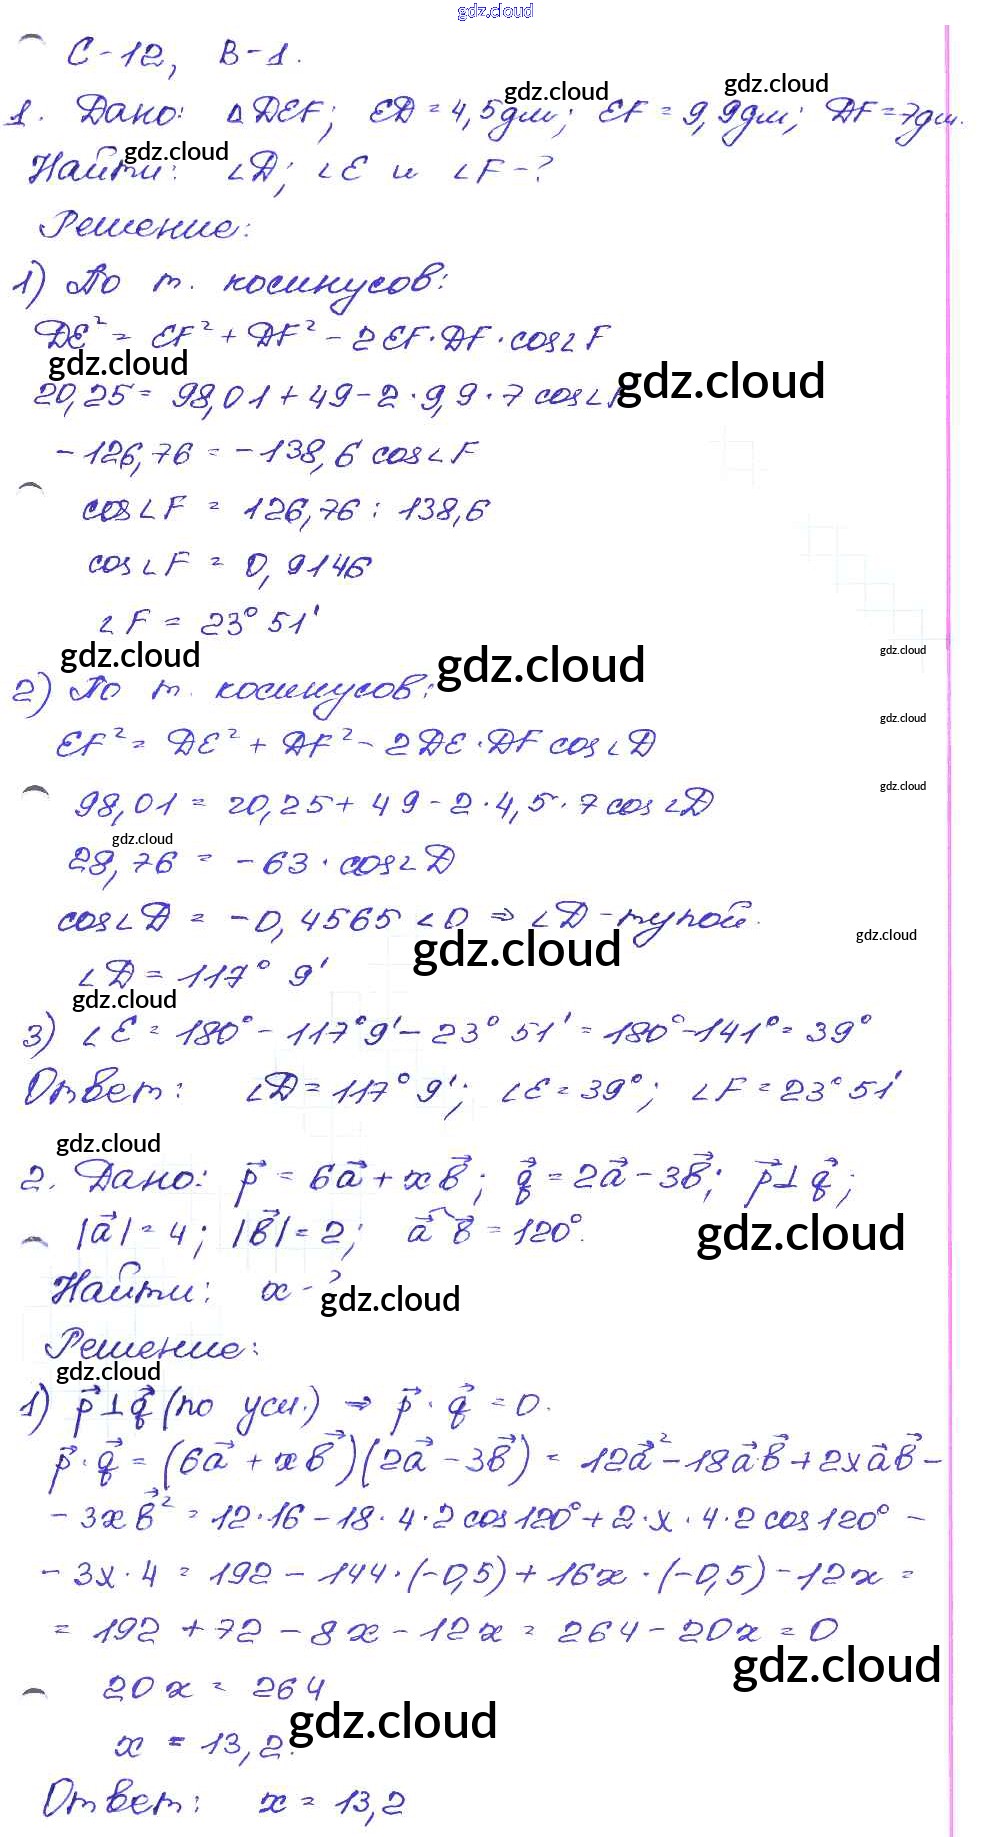 gdz.cloud
С-12, В-1.
gdz.cloud gdz.cloud
1. Дано: ΔDEF; ED = 4,5дм; EF = 9,9дм; DF = 7дм.
gdz.cloud
Найти: ∠D; ∠E и ∠F - ?
Решение:
1) По т. косинусов:
DE² = EF² + DF² - 2EF·DF·cos∠F
gdz.cloud gdz.cloud
20,25 = 98,01 + 49 - 2·9,9·7 cos∠F
-126,76 = -138,6 cos∠F
cos∠F = 126,76 : 138,6
cos∠F = 0,9146
∠F = 23° 51'
gdz.cloud gdz.cloud gdz.cloud
2) По т. косинусов:
gdz.cloud
EF² = DE² + DF² - 2DE·DF cos∠D
gdz.cloud
98,01 = 20,25 + 49 - 2·4,5·7 cos∠D
gdz.cloud
28,76 = -63·cos∠D
cos∠D = -0,4565 < 0 ⇒ ∠D - тупой.
gdz.cloud gdz.cloud
∠D = 117° 9'
gdz.cloud
3) ∠E = 180° - 117° 9' - 23° 51' = 180° - 141° = 39°
Ответ: ∠D = 117° 9'; ∠E = 39°; ∠F = 23° 51'
gdz.cloud
2. Дано: p⃗ = 6a⃗ + xb⃗; q⃗ = 2a⃗ - 3b⃗; p⃗ ⊥ q⃗;
|a⃗| = 4; |b⃗| = 2; a⃗ b⃗ = 120°.
gdz.cloud
Найти: x - ?
gdz.cloud
Решение:
gdz.cloud
1) p⃗ ⊥ q⃗ (по усл.) ⇒ p⃗ · q⃗ = 0.
p⃗ · q⃗ = (6a⃗ + xb⃗)(2a⃗ - 3b⃗) = 12a⃗² - 18a⃗·b⃗ + 2xa⃗b⃗ -
- 3xb⃗² = 12·16 - 18·4·2 cos120° + 2·x·4·2 cos120° -
- 3x·4 = 192 - 144·(-0,5) + 16x·(-0,5) - 12x =
= 192 + 72 - 8x - 12x = 264 - 20x = 0
gdz.cloud
20x = 264
gdz.cloud
x = 13,2.
Ответ: x = 13,2